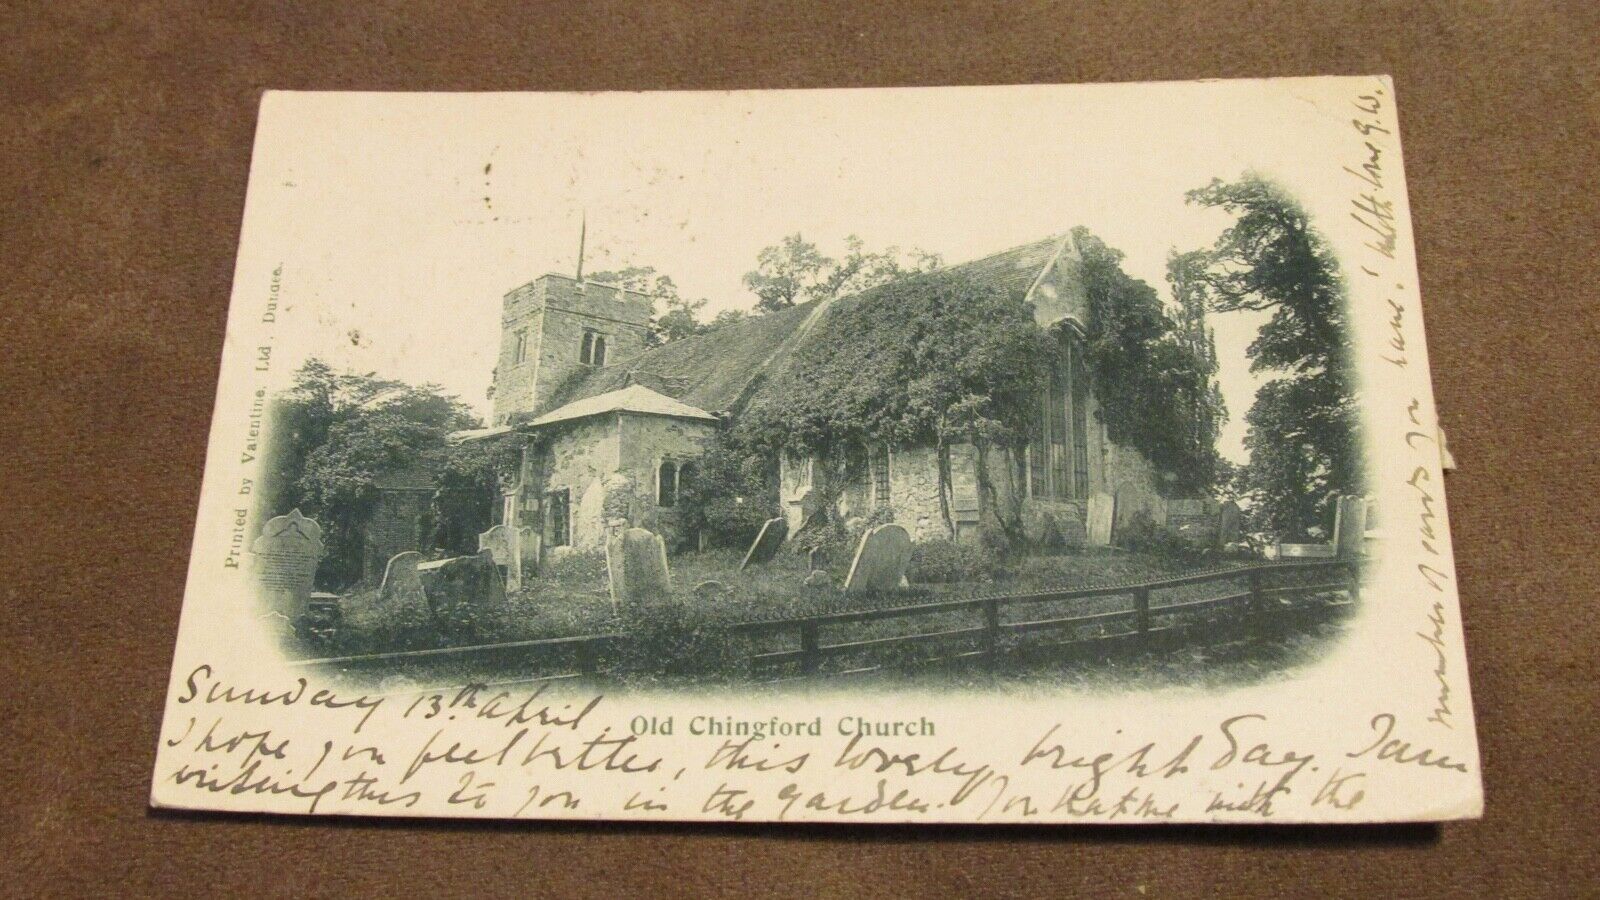 Printed by Valentine, Ltd. Dundee.
Old Chingford Church
Sunday 13th April.
I hope you feel better, this lovely bright Day. I am
writing this to you in the Garden. You me with the
number of cards you have. with love G.W.